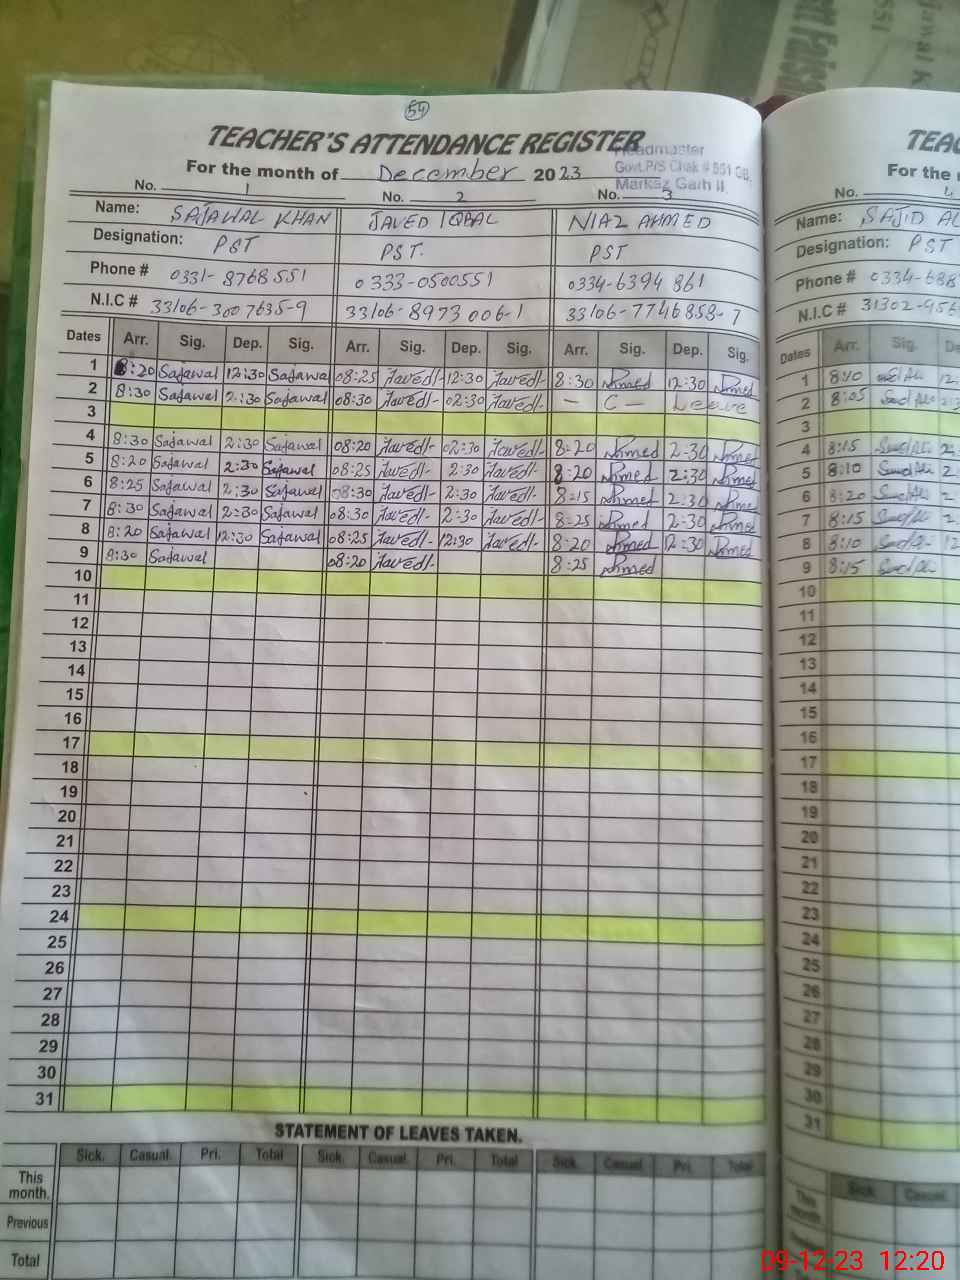 54
TEACHER'S ATTENDANCE REGISTER
For the month of December 2023
Headmaster
Govt.P/S Chak # 551 GB,
Markaz Garh II
No. 1 No. 2 No. 3
Name: SAJAWAL KHAN JAVED IQBAL NIAZ AHMED
Designation: PST PST. PST
Phone # 0331-8768551 0333-0500551 0334-6394861
N.I.C # 33106-3007635-9 33106-8973006-1 33106-7746858-7
Dates Arr. Sig. Dep. Sig. Arr. Sig. Dep. Sig. Arr. Sig. Dep. Sig.
1 8:20 Sajawal 12:30 Sajawal 08:25 Javed 12:30 Javed 8:30 Ahmed 12:30 Ahmed
2 8:30 Sajawal 2:30 Sajawal 08:30 Javed 02:30 Javed — C — Leave
3
4 8:30 Sajawal 2:30 Sajawal 08:20 Javed 02:30 Javed 8:20 Ahmed 2:30 Ahmed
5 8:20 Sajawal 2:30 Sajawal 08:25 Javed 2:30 Javed 8:20 Ahmed 2:30 Ahmed
6 8:25 Sajawal 2:30 Sajawal 08:30 Javed 2:30 Javed 8:15 Ahmed 2:30 Ahmed
7 8:30 Sajawal 2:30 Sajawal 08:30 Javed 2:30 Javed 8:25 Ahmed 2:30 Ahmed
8 8:20 Sajawal 12:30 Sajawal 08:25 Javed 12:30 Javed 8:20 Ahmed 12:30 Ahmed
9 8:30 Sajawal 08:20 Javed 8:25 Ahmed
10
11
12
13
14
15
16
17
18
19
20
21
22
23
24
25
26
27
28
29
30
31
STATEMENT OF LEAVES TAKEN.
Sick. Casual. Pri. Total Sick. Casual. Pri. Total Sick. Casual. Pri. Total
This month.
Previous
Total
TEAC
For the
No. 4
Name: SAJID AL
Designation: PST
Phone # 0334-688
N.I.C # 31302-956
Dates Arr. Sig. De
1 8:10 12:
2 8:05
3
4 8:15 2:
5 8:10 2
6 8:20 2
7 8:15 2
8 8:10 12
9 8:15
10
11
12
13
14
15
16
17
18
19
20
21
22
23
24
25
26
27
28
29
30
31
Sick. Casual.
This month
09-12-23 12:20